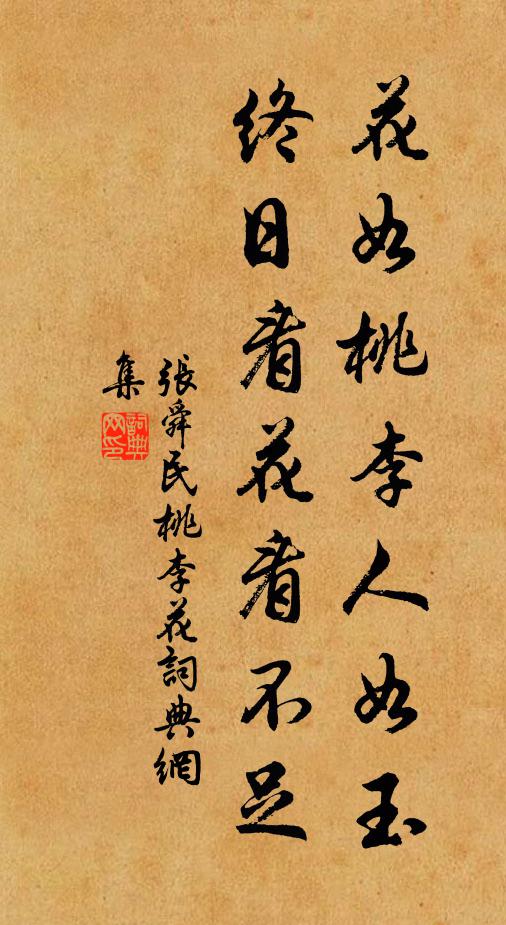 花如桃李人如玉
終日看花看不足
張舜民桃李花詞典網
集
詞典
网印